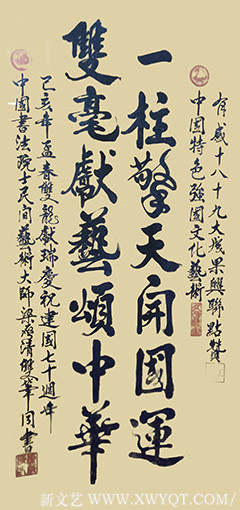 有感十八十九大成果興联點赞
中国特色強國文化藝術
一柱擎天開國運
雙毫獻藝頌中華
己亥年孟春雙龍獻瑞慶祝建国七十週年
中国書法院士民间藝術大師梁海清雙筆同書
新文艺 WWW.XWYQT.COM